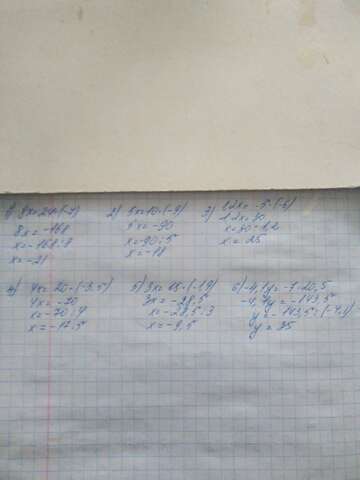 1) 8x=24·(-7)
8x=-168
x=-168:8
x=-21
2) 5x=10·(-9)
5x=-90
x=-90:5
x=-18
3) 1,2x=-5·(-6)
1,2x=30
x=30:1,2
x=25
4) 4x=20·(-3,5)
4x=-70
x=-70:4
x=-17,5
5) 3x=15·(-1,9)
3x=-28,5
x=-28,5:3
x=-9,5
6) -4,1y=-7·20,5
-4,1y=-143,5
y=-143,5:(-4,1)
y=35